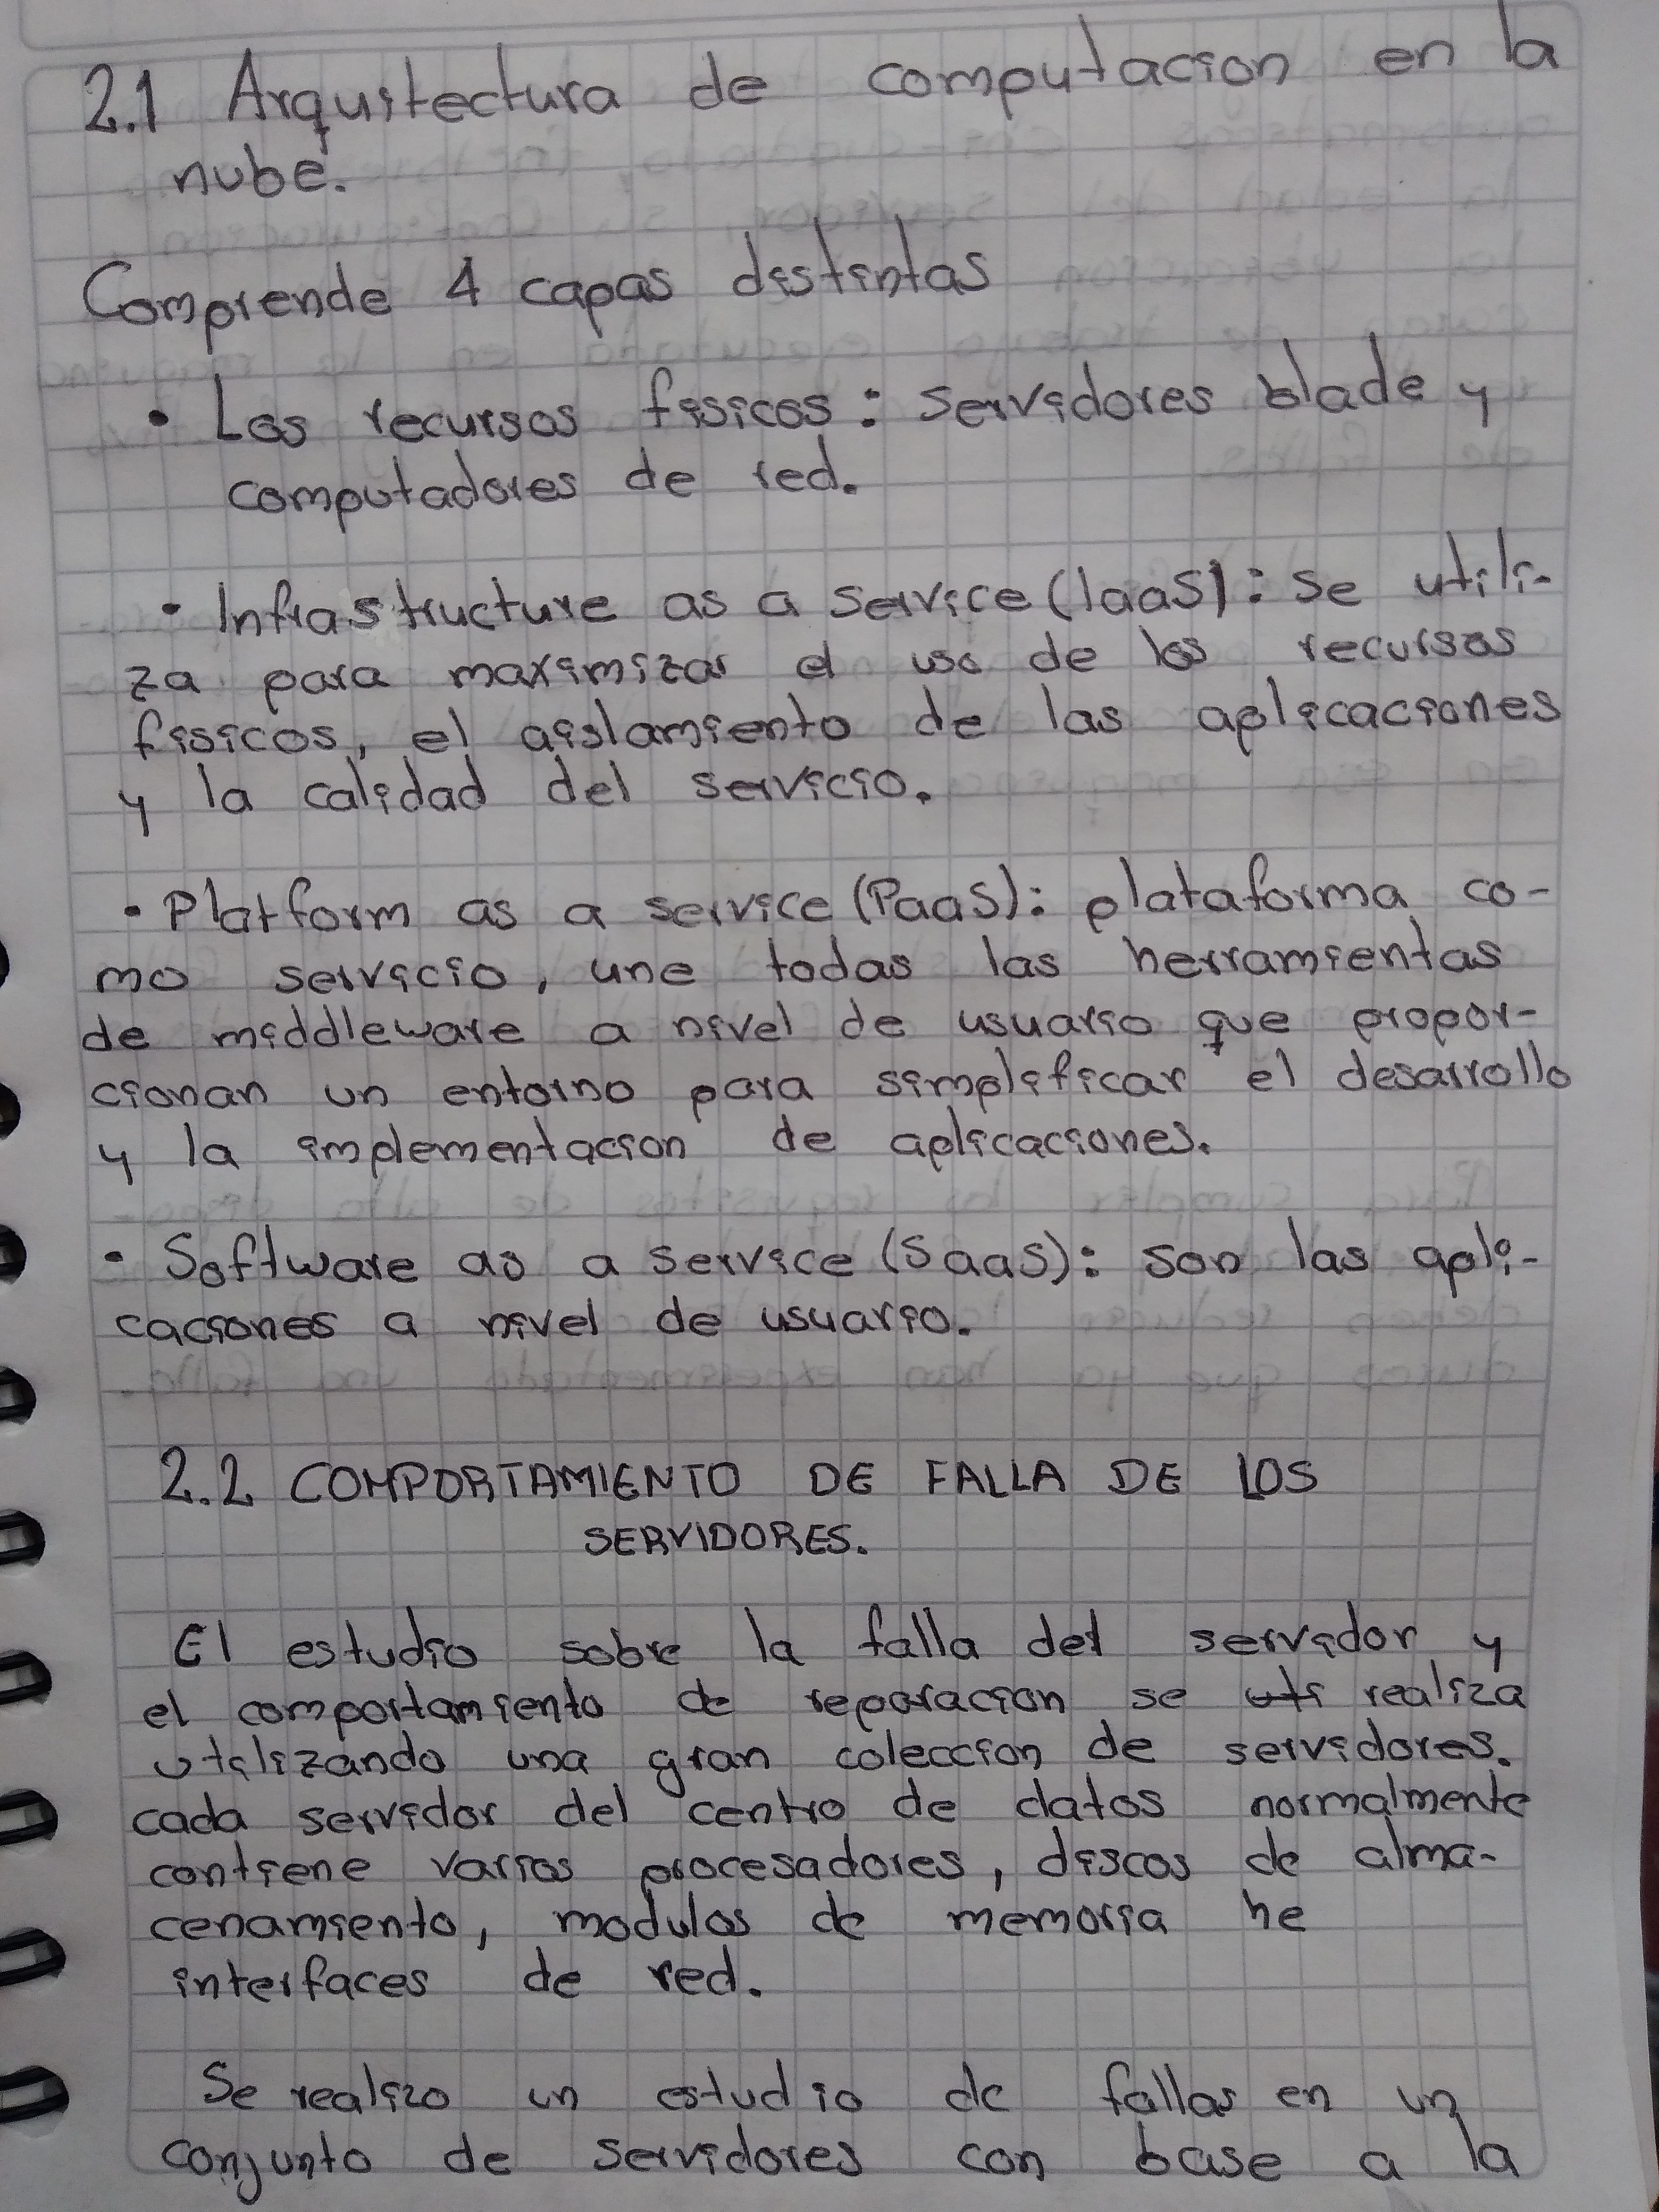 2.1 Arquitectura de computacion en la
nube.
Comprende 4 capas distintas
• Los recursos fisicos: servidores blade y
computadores de red.
• Infrastructure as a service (IaaS): se utili-
za para maximizar el uso de los recursos
fisicos, el aislamiento de las aplicaciones
y la calidad del servicio.
• Platform as a service (PaaS): plataforma co-
mo servicio, une todas las herramientas
de middleware a nivel de usuario que propor-
cionan un entorno para simplificar el desarrollo
y la implementacion de aplicaciones.
• Software as a service (SaaS): son las apli-
caciones a nivel de usuario.
2.2 COMPORTAMIENTO DE FALLA DE LOS
SERVIDORES.
El estudio sobre la falla del servidor y
el comportamiento de reparacion se realiza
utilizando una gran coleccion de servidores.
cada servidor del centro de datos normalmente
contiene varios procesadores, discos de alma-
cenamiento, modulos de memoria he
interfaces de red.
Se realizo un estudio de fallas en un
conjunto de servidores con base a la